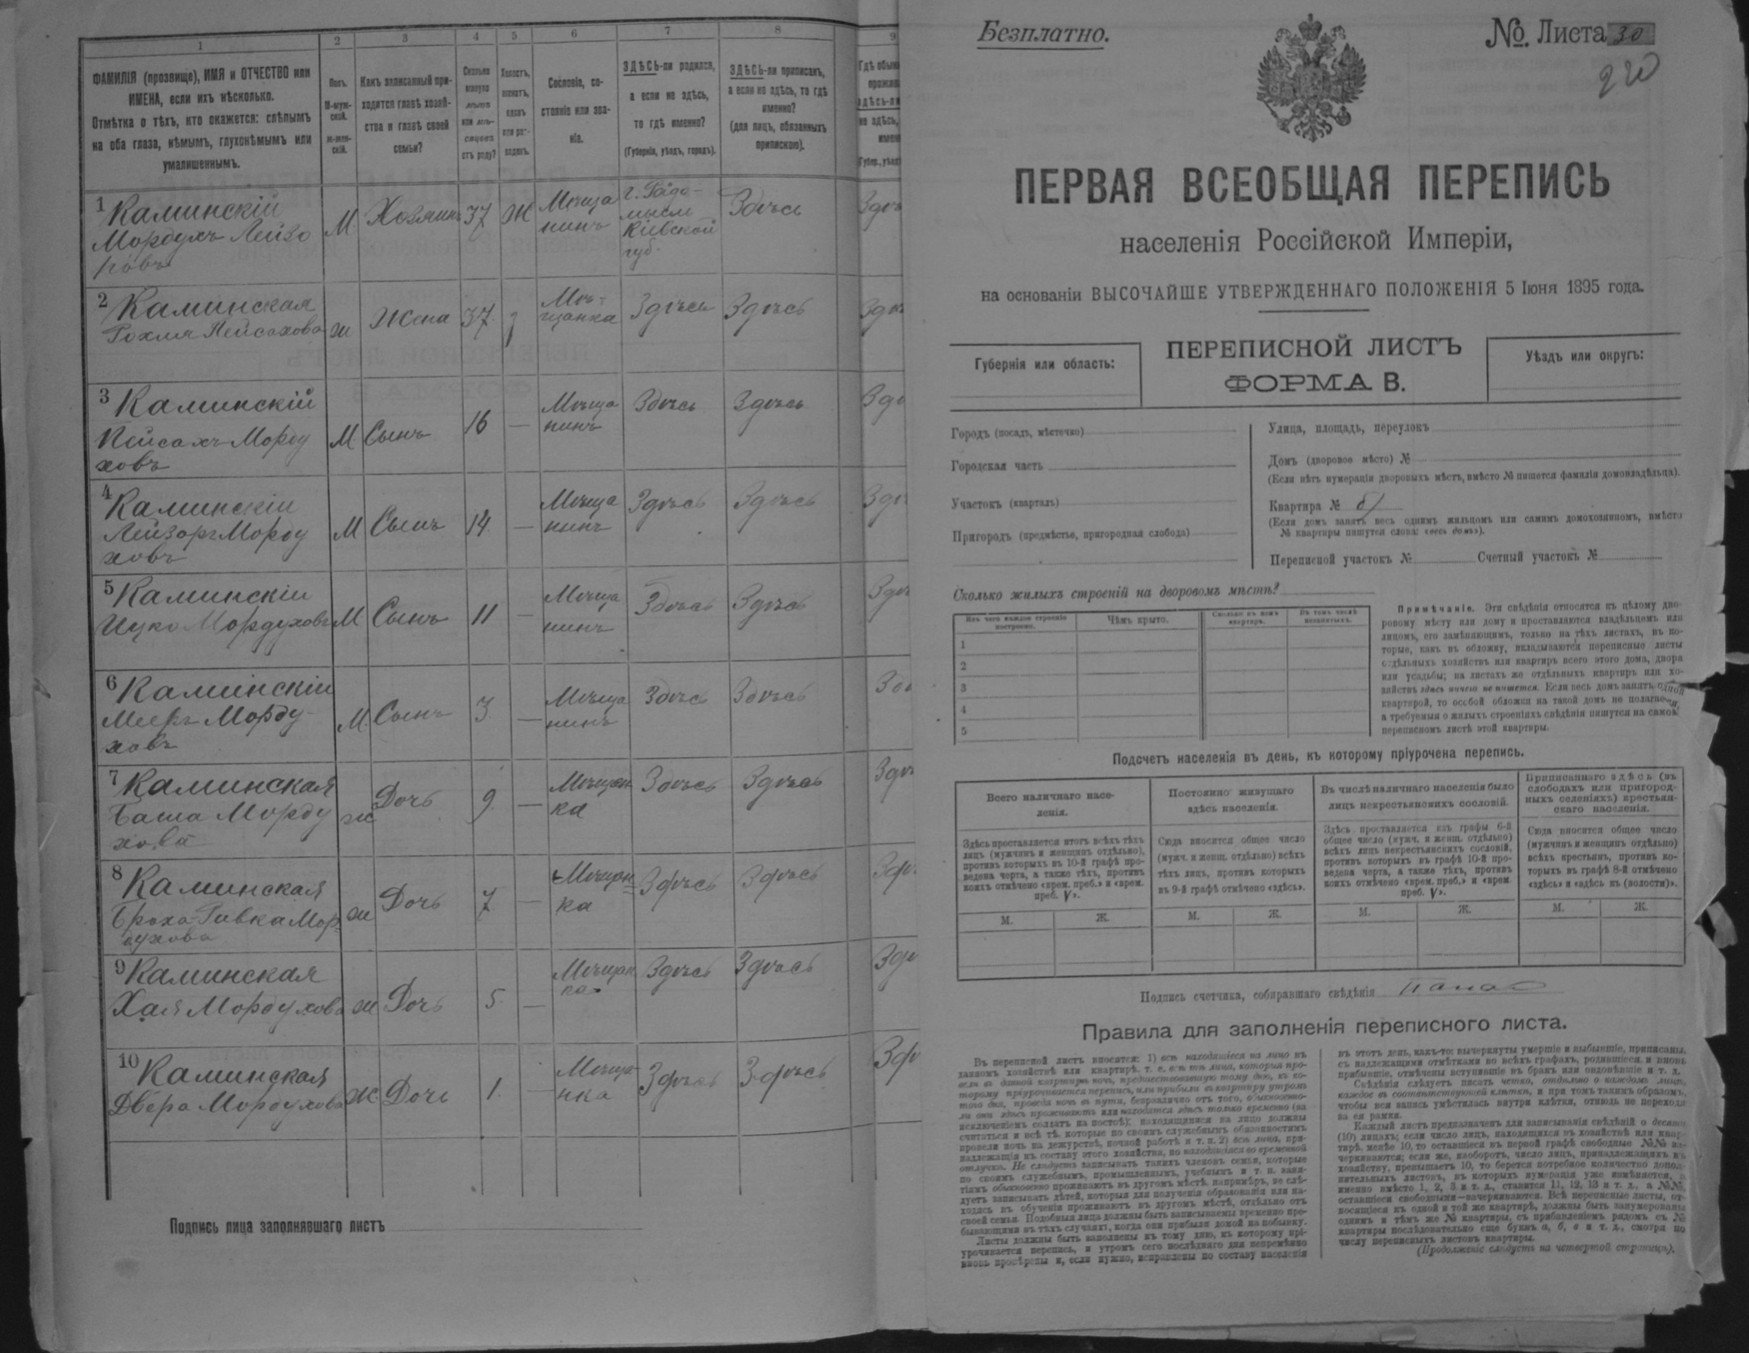 1
2
3
4
5
6
7
8
9
ФАМИЛІЯ (прозвище), ИМЯ и ОТЧЕСТВО или
ИМЕНА, если ихъ нѣсколько.
Отмѣтка о тѣхъ, кто окажется: слѣпымъ
на оба глаза, нѣмымъ, глухонѣмымъ или
умалишеннымъ.
Полъ.
М-муж-
ской.
ж-жен-
скій.
Какъ записанный при-
ходится главѣ хозяй-
ства и главѣ своей
семьи?
Сколько
минуло
лѣтъ
или мѣ-
сяцевъ
отъ роду?
Холостъ,
женатъ,
вдовъ
или раз-
веденъ.
Сословіе, со-
стояніе или зва-
ніе.
ЗДѢСЬ-ли родился,
а если не здѣсь,
то гдѣ именно?
(Губернія, уѣздъ, городъ).
ЗДѢСЬ-ли приписанъ,
а если не здѣсь, то гдѣ
именно?
(для лицъ, обязанныхъ
припискою).
1 Каминскій
Мордухъ Лейзо
ровъ
М
Хозяинъ
37
Ж
Мѣща
нинъ
г. Радо-
мысль
Кіевской
губ.
Здѣсь
2 Каминская
Рохля Пейсахова
ж
Жена
37
Мѣ-
щанка
Здѣсь
Здѣсь
3 Каминскій
Пейсахъ Морду
ховъ
М
Сынъ
16
—
Мѣща
нинъ
Здѣсь
Здѣсь
4 Каминскій
Лейзоръ Морду
ховъ
М
Сынъ
14
—
Мѣща
нинъ
Здѣсь
Здѣсь
5 Каминскій
Ицко Мордуховъ
М
Сынъ
11
—
Мѣща
нинъ
Здѣсь
Здѣсь
6 Каминскій
Мееръ Морду-
ховъ
М
Сынъ
3
—
Мѣща
нинъ
Здѣсь
Здѣсь
7 Каминская
Баша Морду
хова
ж
Дочь
9
—
Мѣщан
ка
Здѣсь
Здѣсь
8 Каминская
Броха-Ривка Мор
духова
ж
Дочь
7
—
Мѣщан
ка
Здѣсь
Здѣсь
9 Каминская
Хая Мордухова
ж
Дочь
5
—
Мѣщан
ка
Здѣсь
Здѣсь
10 Каминская
Двера Мордухова
Ж
Дочь
1
—
Мѣща
нка
Здѣсь
Здѣсь
Подпись лица заполнявшаго листъ
Безплатно.
№ Листа 30
220
ПЕРВАЯ ВСЕОБЩАЯ ПЕРЕПИСЬ
населенія Россійской Имперіи,
на основаніи ВЫСОЧАЙШЕ УТВЕРЖДЕННАГО ПОЛОЖЕНІЯ 5 Іюня 1895 года.
Губернія или область:
ПЕРЕПИСНОЙ ЛИСТЪ
ФОРМА В.
Уѣздъ или округъ:
Городъ (посадъ, мѣстечко)
Городская часть
Участокъ (кварталъ)
Пригородъ (предмѣстье, пригородная слобода)
Улица, площадь, переулокъ
Домъ (дворовое мѣсто) №
(Если нѣтъ нумераціи дворовыхъ мѣстъ, вмѣсто № пишется фамилія домовладѣльца).
Квартира №
(Если домъ занятъ весь однимъ жильцомъ или самимъ домохозяиномъ, вмѣсто
№ квартиры пишутся слова: «весь домъ»).
Переписной участокъ № Счетный участокъ №
Сколько жилыхъ строеній на дворовомъ мѣстѣ?
Изъ чего каждое строеніе
построено.
Чѣмъ крыто.
Сколько въ немъ
квартиръ.
Въ томъ числѣ
незанятыхъ.
1
2
3
4
5
Примѣчаніе. Эти свѣдѣнія относятся къ цѣлому дво-
ровому мѣсту или дому и проставляются владѣльцемъ или
лицомъ, его замѣняющимъ, только на тѣхъ листахъ, въ ко-
торые, какъ въ обложку, вкладываются переписные листы
отдѣльныхъ хозяйствъ или квартиръ всего этого дома, двора
или усадьбы; на листахъ же отдѣльныхъ квартиръ или хо-
зяйствъ здѣсь ничего не пишется. Если весь домъ занятъ одной
квартирой, то особой обложки на такой домъ не полагается,
а требуемыя о жилыхъ строеніяхъ свѣдѣнія пишутся на самомъ
переписномъ листѣ этой квартиры.
Подсчетъ населенія въ день, къ которому пріурочена перепись.
Всего наличнаго насе-
ленія.
Постоянно живущаго
здѣсь населенія.
Въ числѣ наличнаго населенія было
лицъ некрестьянскихъ сословій.
Приписаннаго здѣсь (въ
слободахъ или пригород-
ныхъ селеніяхъ) крестьян-
скаго населенія.
Здѣсь проставляется итогъ всѣхъ тѣхъ
лицъ (мужчинъ и женщинъ отдѣльно),
противъ которыхъ въ 10-й графѣ про-
ведена черта, а также тѣхъ, противъ
коихъ отмѣчено «врем. преб.» и «врем.
преб. V».
Сюда вносится общее число
(мужч. и женщ. отдѣльно) всѣхъ
тѣхъ лицъ, противъ которыхъ
въ 9-й графѣ отмѣчено «здѣсь».
Здѣсь проставляется изъ графы 6-й
общее число (мужч. и женщ. отдѣльно)
всѣхъ лицъ некрестьянскихъ сословій,
противъ которыхъ въ графѣ 10-й про-
ведена черта, а также тѣхъ, противъ
коихъ отмѣчено «врем. преб.» и «врем.
преб. V».
Сюда вносится общее число
(мужчинъ и женщинъ отдѣльно)
всѣхъ крестьянъ, противъ ко-
торыхъ въ графѣ 8-й отмѣчено
«здѣсь» и «здѣсь въ (волости)».
М. Ж. М. Ж. М. Ж. М. Ж.
Подпись счетчика, собиравшаго свѣдѣнія
Правила для заполненія переписного листа.
Въ переписной листъ вносятся: 1) всѣ находящіеся на лицо въ
данномъ хозяйствѣ или квартирѣ, т. е. всѣ тѣ лица, которыя про-
вели въ данной квартирѣ ночь, предшествовавшую тому дню, къ ко-
торому пріурочивается перепись, или прибыли въ квартиру утромъ
того дня, проведя ночь въ пути, безразлично отъ того, обыкновенно-
ли они здѣсь проживаютъ или находятся здѣсь только временно (за
исключеніемъ солдатъ на постоѣ); находящимися на лицо должны
считаться и всѣ тѣ, которые по своимъ служебнымъ обязанностямъ
провели ночь на дежурствѣ, ночной работѣ и т. п. 2) всѣ лица, при-
надлежащія къ составу этого хозяйства, но находящіяся во временной
отлучкѣ. Не слѣдуетъ записывать такихъ членовъ семьи, которые
по своимъ служебнымъ, промышленнымъ, учебнымъ и т. п. заня-
тіямъ обыкновенно проживаютъ въ другомъ мѣстѣ, напримѣръ, не слѣ-
дуетъ записывать дѣтей, которыя для полученія образованія или на-
ходясь въ обученіи проживаютъ въ другомъ мѣстѣ, отдѣльно отъ
своей семьи. Подобныя лица должны быть записываемы временно пре-
бывающими въ тѣхъ случаяхъ, когда они прибыли домой на побывку.
Листы должны быть заполнены къ тому дню, къ которому прі-
урочивается перепись, и утромъ сего послѣдняго дня непремѣнно
вновь провѣрены и, если нужно, исправлены по составу населенія
въ этотъ день, какъ-то: вычеркнуты умершіе и выбывшіе, приписаны,
съ надлежащими отмѣтками во всѣхъ графахъ, родившіеся и вновь
прибывшіе, отмѣчены вступившіе въ бракъ или овдовѣвшіе и т. д.
Свѣдѣнія слѣдуетъ писать четко, отдѣльно о каждомъ лицѣ,
каждое въ соотвѣтствующей клѣткѣ, и при томъ такимъ образомъ,
чтобы вся запись умѣстилась внутри клѣтки, отнюдь не переходя
за ея рамки.
Каждый листъ предназначенъ для записыванія свѣдѣній о десяти
(10) лицахъ; если число лицъ, находящихся въ хозяйствѣ или квар-
тирѣ, менѣе 10, то оставшіеся въ первой графѣ свободные №№ за-
черкиваются; если же, наоборотъ, число лицъ, принадлежащихъ къ
хозяйству, превышаетъ 10, то берется потребное количество допол-
нительныхъ листовъ, въ которыхъ нумерація уже измѣняется, а
именно вмѣсто 1, 2, 3 и т. д., ставится 11, 12, 13 и т. д., а №№,
оставшіеся свободными—зачеркиваются. Всѣ переписные листы, от-
носящіеся къ одной и той же квартирѣ, должны быть занумерованы
однимъ и тѣмъ же № квартиры, съ прибавленіемъ рядомъ съ №
квартиры послѣдовательно еще буквъ а, б, в и т. д., смотря по
числу переписныхъ листовъ квартиры.
(Продолженіе слѣдуетъ на четвертой страницѣ).